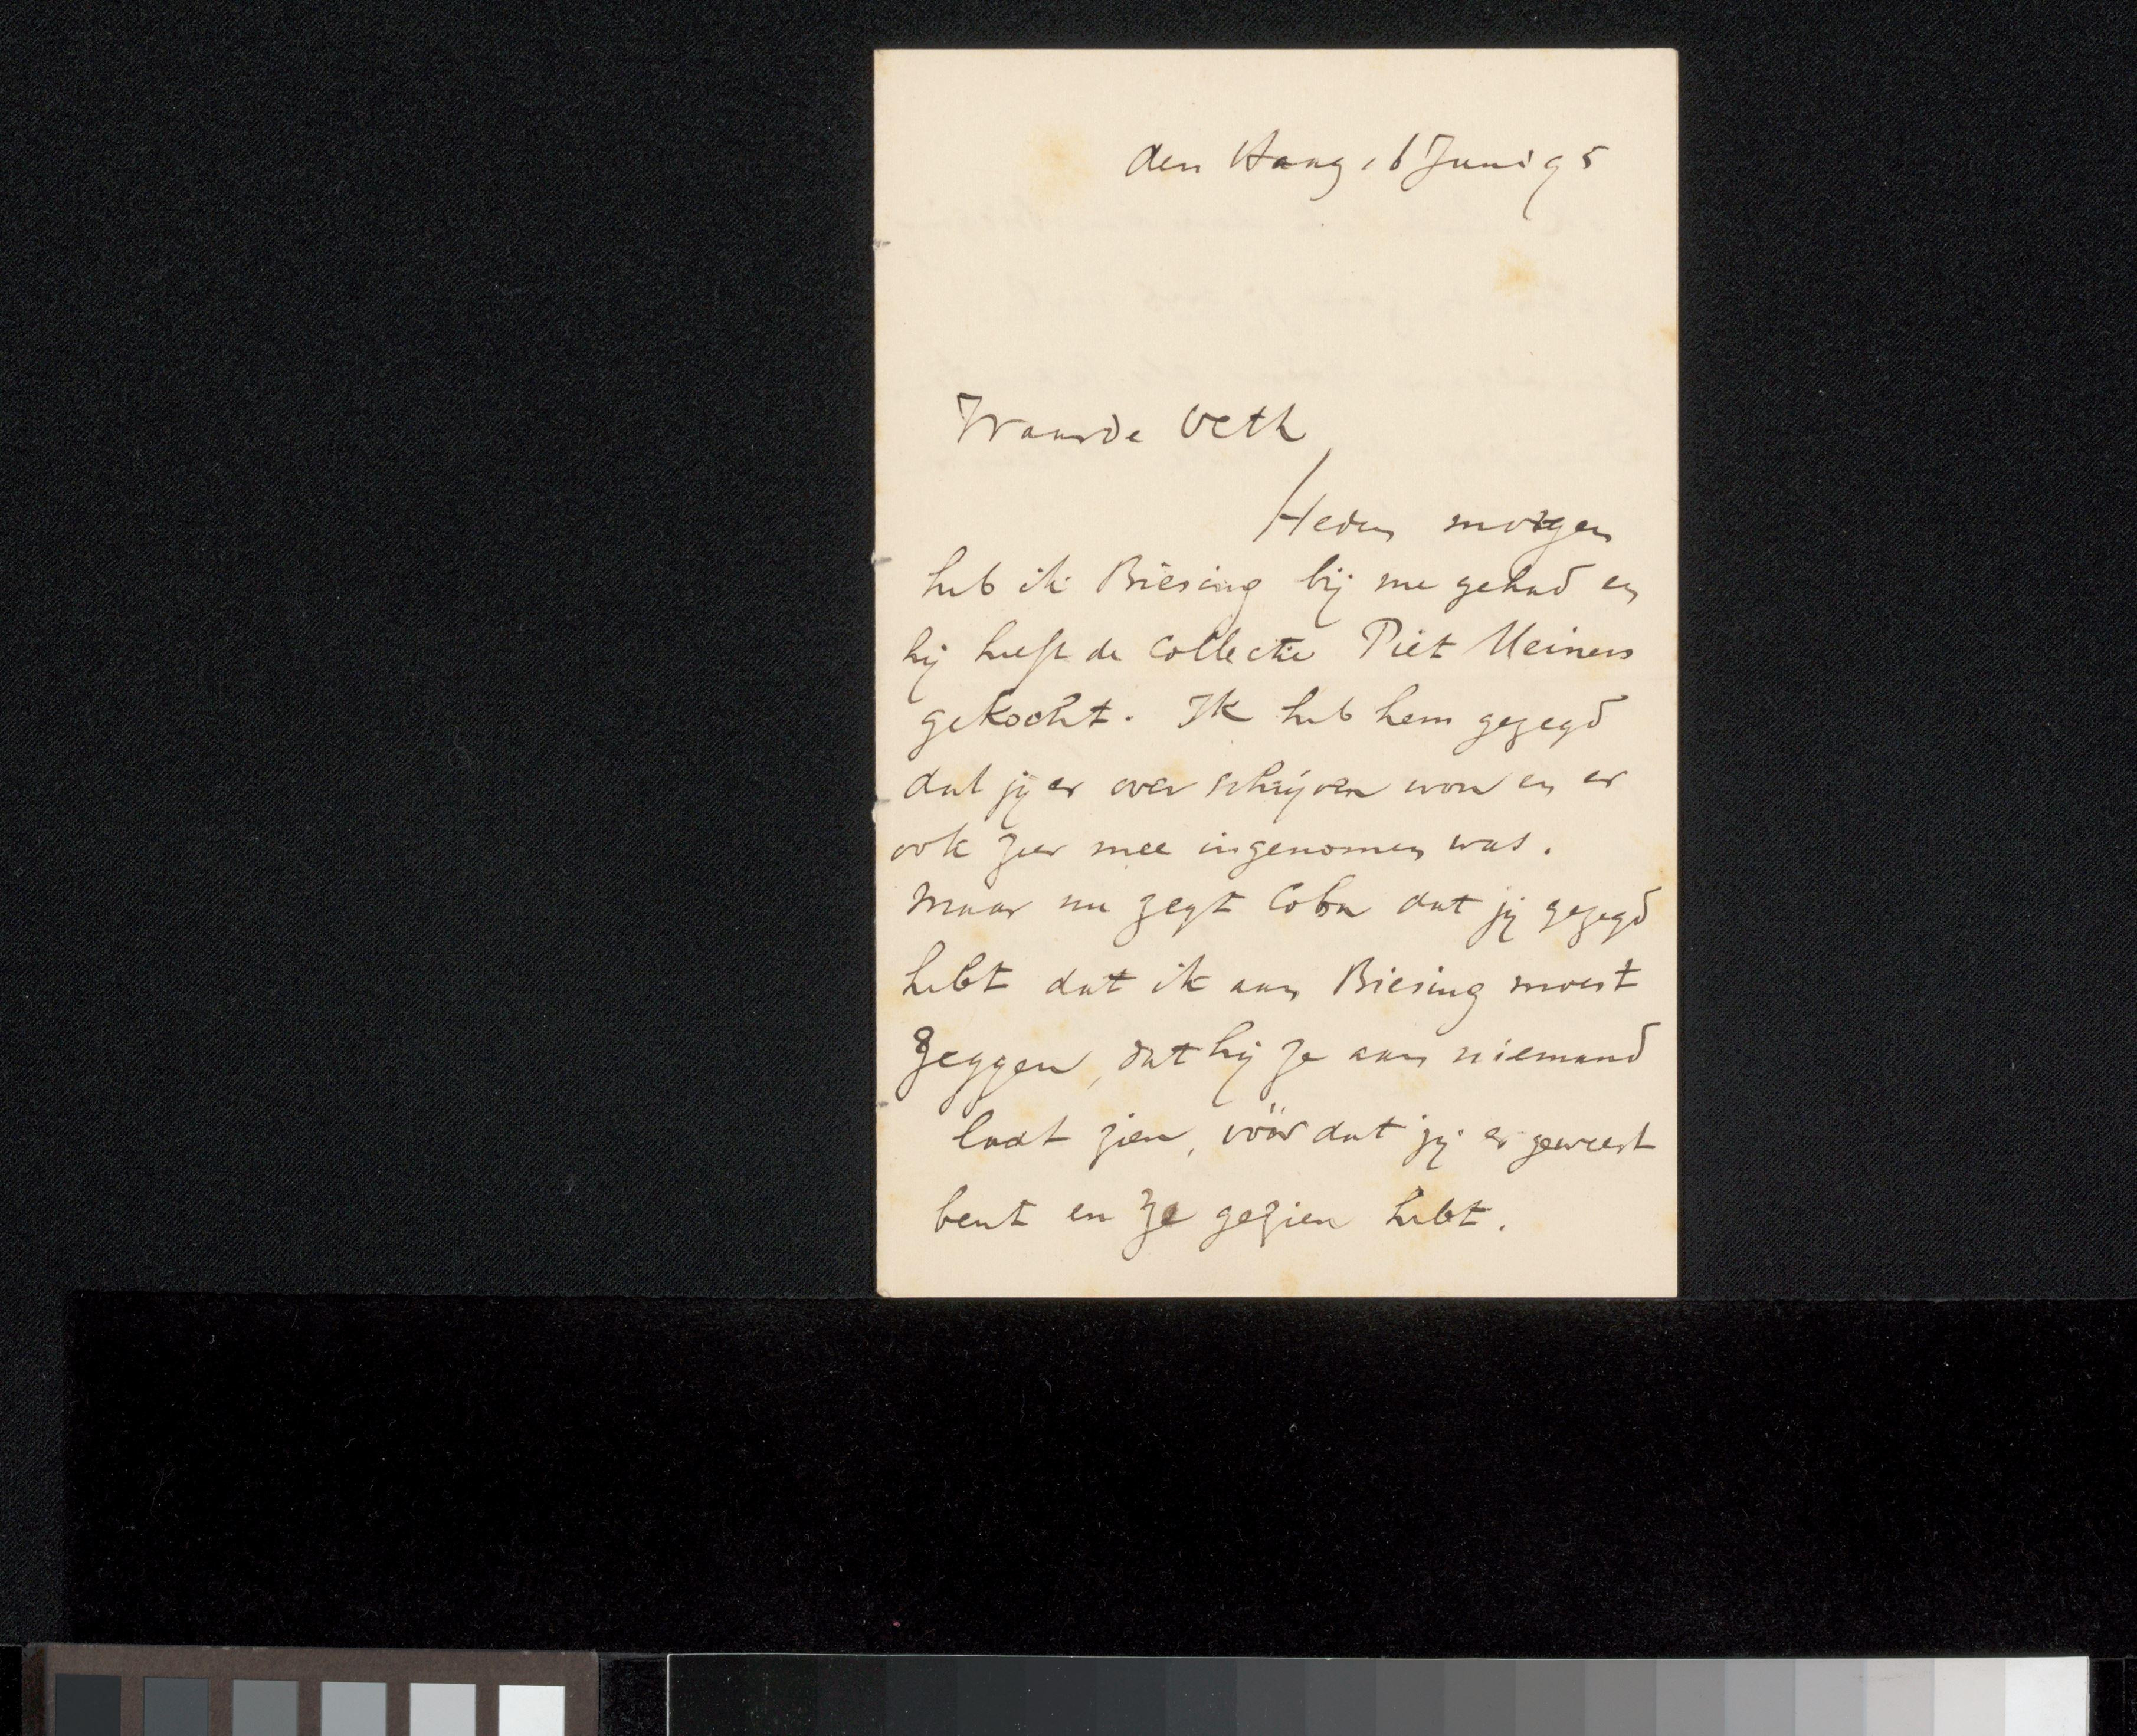 den Haag, 16 Juni 95
Waarde Veth,
Heden morgen
heb ik Biesing bij me gehad en
hij heeft de collectie Piet Meiners
gekocht. Ik heb hem gezegd
dat jij er over schrijven wou en er
ook zeer mee ingenomen was.
Maar nu zegt Coba dat jij gezegd
hebt dat ik aan Biesing moest
zeggen, dat hij ze aan niemand
laat zien, vóór dat jij er geweest
bent en ze gezien hebt.